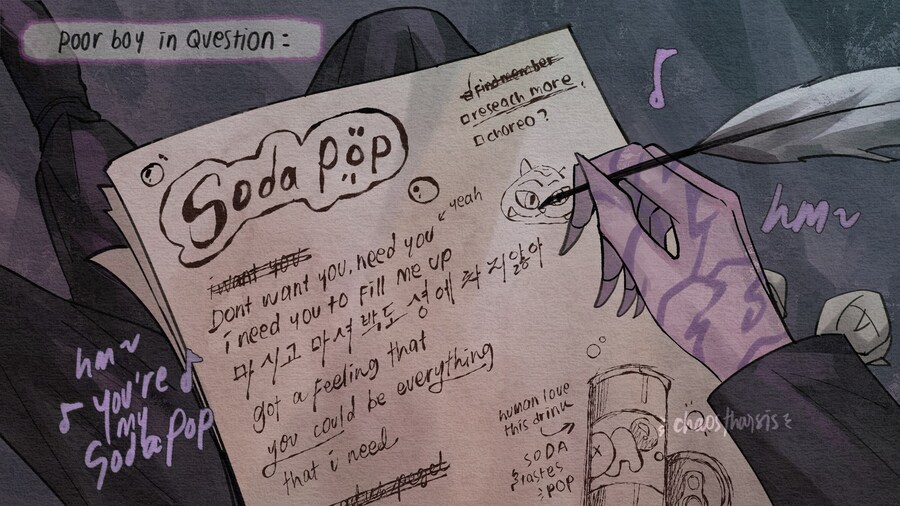 poor boy in Question :
Soda pop
find member
reseach more
choreo ?
yeah
i want you
Dont want you, need you
i need you to Fill me up
마시고 마셔 봐도 성에 차지 않아
got a feeling that
you could be everything
that i need
human love
this drink
SODA
tastes
POP
hm~
hm~
you're
my
Soda Pop
chaostharsis